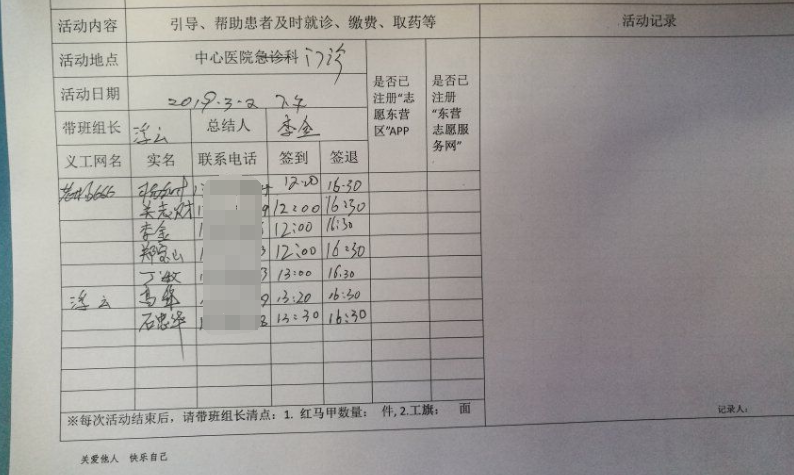 活动内容 引导、帮助患者及时就诊、缴费、取药等 活动记录
活动地点 中心医院急诊科门诊
活动日期 2019.3.2 下午
是否已注册“志愿东营区”APP
是否已注册“东营志愿服务网”
带班组长 浮云 总结人 李金
义工网名 实名 联系电话 签到 签退
12:20 16:30
吴志财 12:00 16:30
李金 12:00 16:30
郑宝山 12:00 16:30
丁敏 13:00 16:30
浮云 高峰 13:20 16:30
石忠华 13:30 16:30
※每次活动结束后，请带班组长清点：1. 红马甲数量： 件, 2.工旗： 面
记录人：
关爱他人 快乐自己